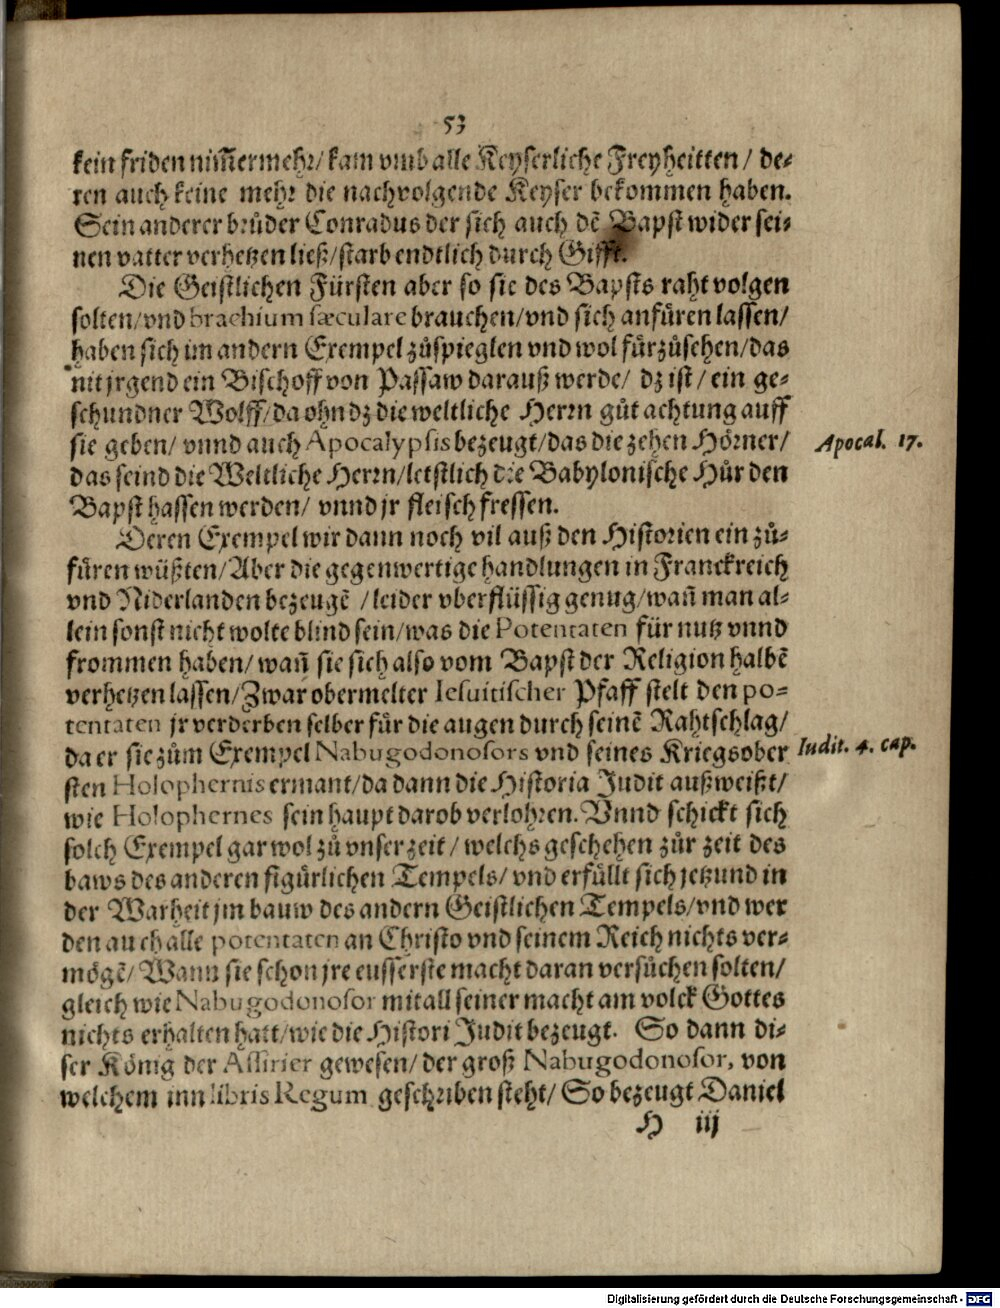 53
kein friden nim̃ermehr/ kam vmb alle Keyserliche Freyheitten / de-
ren auch keine mehr die nachvolgende Keyser bekommen haben.
Sein anderer brůder Conradus der sich auch dẽ Bapst wider sei-
nen vatter verhetzen ließ/starb endtlich durch Gifft.
Die Geistlichen Fürsten aber so sie des Bapsts raht volgen
solten/vnd brachium sæculare brauchen/vnd sich anfüren lassen/
haben sich im andern Exempel zůspieglen vnd wol fürzůsehen/das
nit jrgend ein Bischoff von Passaw darauß werde/ dz ist / ein ge-
schundner Wolff/da ohn dz die weltliche Herrn gůt achtung auff
sie geben/ vnnd auch Apocalypsis bezeugt/das die zehen Hörner/
Apocal. 17.
das seind die Weltliche Herrn/letstlich die Babylonische Hůr den
Bapst hassen werden/ vnnd jr fleisch fressen.
Deren Exempel wir dann noch vil auß den Historien ein zů-
füren wüßten/Aber die gegenwertige handlungen in Franckreich
vnd Niderlanden bezeugẽ /leider vberflüssig genug/wañ man al-
lein sonst nicht wolte blind sein/was die Potentaten für nutz vnnd
frommen haben/ wañ sie sich also vom Bapst der Religion halbẽ
verhetzen lassen/Zwar obermelter Iesuitischer Pfaff stelt den po-
tentaten jr verderben selber für die augen durch seinẽ Rahtschlag/
da er sie zům Exempel Nabugodonosors vnd seines Kriegsober
Iudit. 4. cap.
sten Holophernis ermant/da dann die Historia Judit außweißt/
wie Holophernes sein haupt darob verlohren. Vnnd schickt sich
solch Exempel gar wol zů vnser zeit / welchs geschehen zůr zeit des
baws des anderen figürlichen Tempels/ vnd erfüllt sich jetzund in
der Warheit jm bauw des andern Geistlichen Tempels/vnd wer
den auch alle potentaten an Christo vnd seinem Reich nichts ver-
mögẽ/ Wann sie schon jre eusserste macht daran versůchen solten/
gleich wie Nabugodonosor mit all seiner macht am volck Gottes
nichts erhalten hatt/wie die Histori Judit bezeugt. So dann di-
ser König der Assirier gewesen/ der groß Nabugodonosor, von
welchem inn libris Regum geschriben steht/ So bezeugt Daniel
H iij
Digitalisierung gefördert durch die Deutsche Forschungsgemeinschaft - DFG